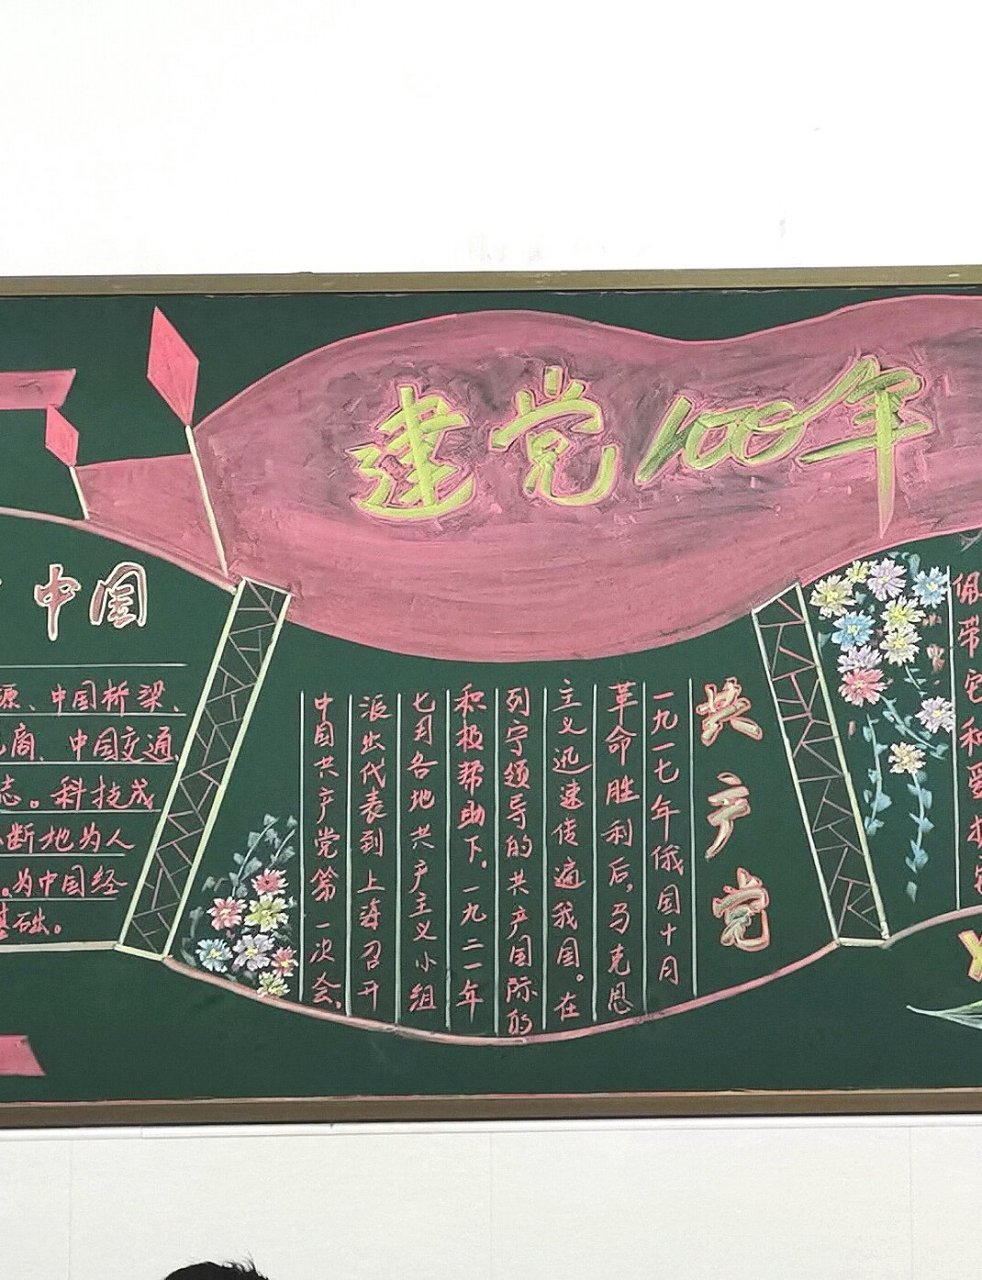 建党100年
中国
源、中国桥梁、
商、中国交通、
志。科技成
断地为人
。为中国经
基础。
共产党
一九一七年俄国十月
革命胜利后，马克思
主义迅速传遍我国。在
列宁领导的共产国际的
积极帮助下，一九二一年
七月各地共产主义小组
派出代表到上海召开
中国共产党第一次会，
佩带它和爱护